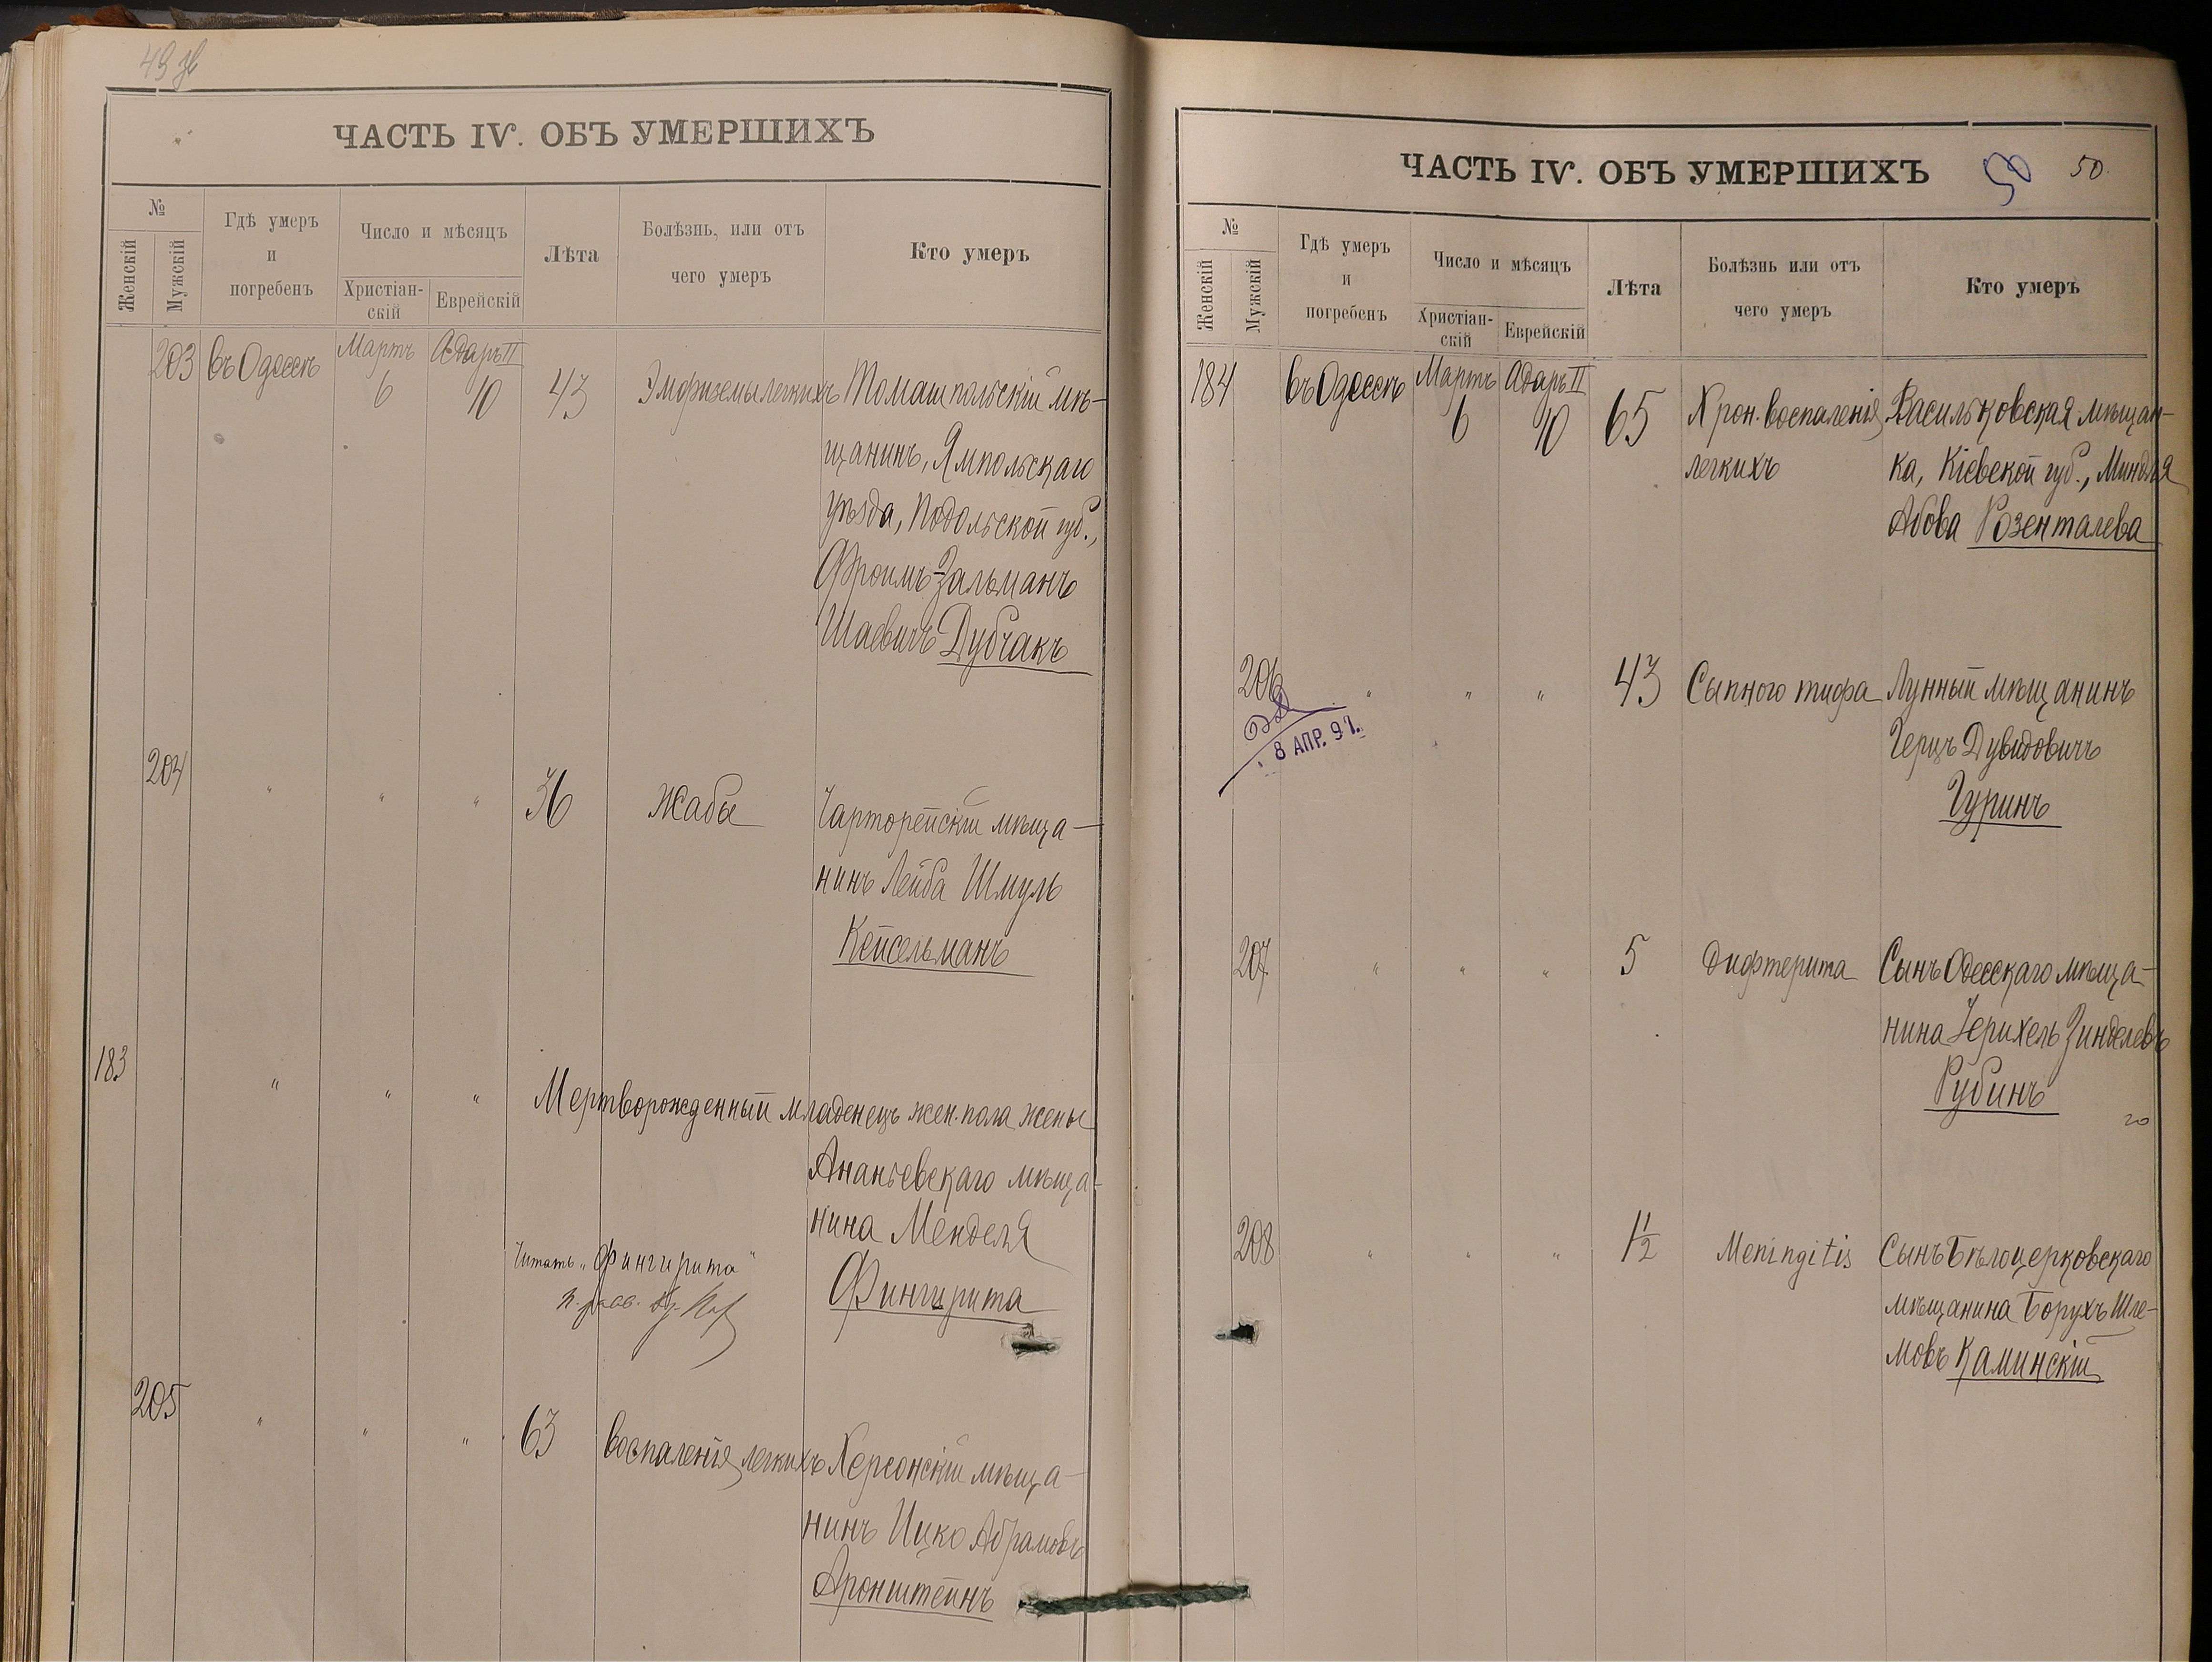 49 зв
ЧАСТЬ IV. ОБЪ УМЕРШИХЪ
№
Женскій
Мужскій
Гдѣ умеръ
и
погребенъ
Число и мѣсяцъ
Христіан-
скій
Еврейскій
Лѣта
Болѣзнь, или отъ
чего умеръ
Кто умеръ
203 въ Одессѣ Мартъ 6 Адаръ II 10 43 Эмфиземы легкихъ Томашпольскій мѣ-
щанинъ, Ямпольскаго
уѣзда, Подольской губ.,
Фроимъ-Зальманъ
Шаевичъ Дубчакъ
204 " " " 36 Жабы Чарторейскій мѣща-
нинъ Лейба Шмуль
Кейсельманъ
183 " " " Мертворожденный младенецъ жен. пола жены
Ананьевскаго мѣща-
нина Менделя
Фингирита
Читать „Фингирита"
205 " " " 63 Воспаленія легкихъ Херсонскій мѣща-
нинъ Ицко Абрамовъ
Аронштейнъ
ЧАСТЬ IV. ОБЪ УМЕРШИХЪ 50 50.
№
Женскій
Мужскій
Гдѣ умеръ
и
погребенъ
Число и мѣсяцъ
Христіан-
скій
Еврейскій
Лѣта
Болѣзнь или отъ
чего умеръ
Кто умеръ
184 въ Одессѣ Мартъ 6 Адаръ II 10 65 Хрон. воспаленія Васильковская мѣщан-
легкихъ ка, Кіевской губ., Миндля
Абова Розенталева
206 " " " 43 Сыпного тифа Лунный мѣщанинъ
8 АПР. 97. Герцъ Дувидовичъ
Гуринъ
207 " " " 5 Дифтерита Сынъ Одесскаго мѣща-
нина Іерихель Зинделевъ
Рубинъ
208 " " " 1 1/2 Meningitis Сынъ Бѣлоцерковскаго
мѣщанина Борухъ Шле-
мовъ Каминскій